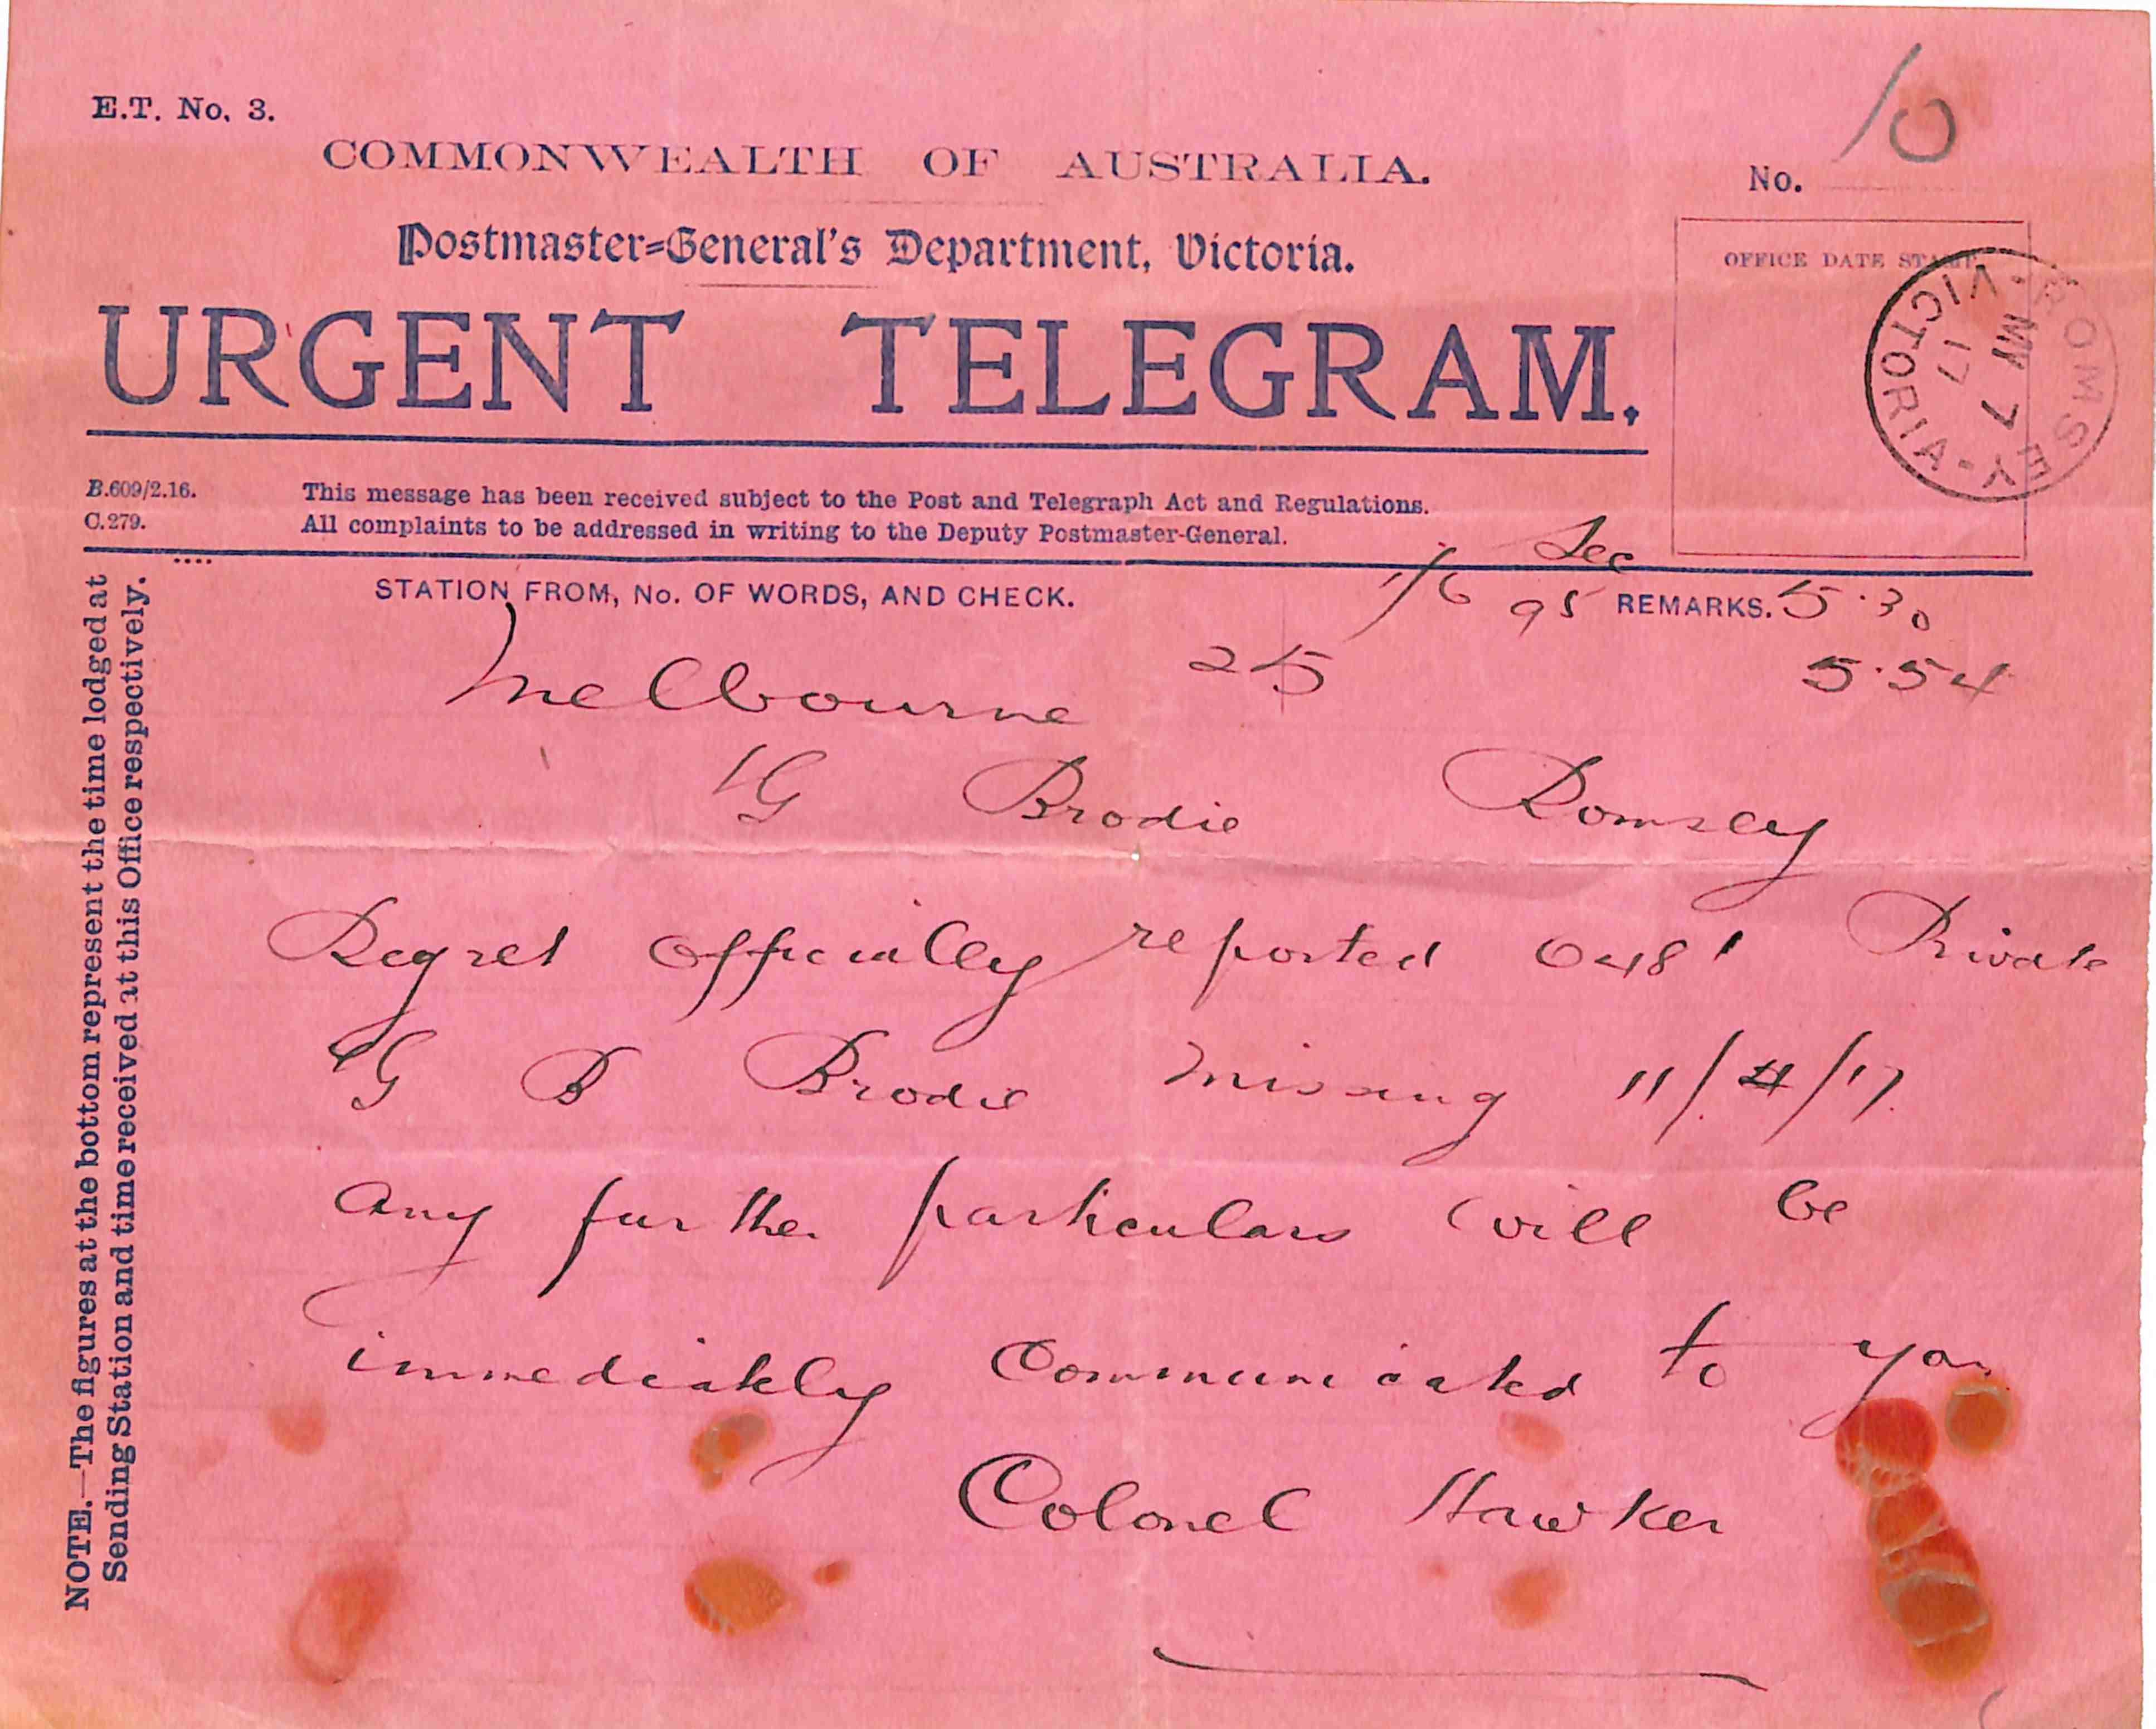 E.T. No. 3.
COMMONWEALTH OF AUSTRALIA.
No. 10
Postmaster-General's Department, Victoria.
OFFICE DATE STAMP
ROMSEY · VICTORIA ·
MY 7
17
URGENT TELEGRAM.
B.609/2.16.
C.279.
This message has been received subject to the Post and Telegraph Act and Regulations.
All complaints to be addressed in writing to the Deputy Postmaster-General.
STATION FROM, No. OF WORDS, AND CHECK.
1/6 95 REMARKS. 5.30
Melbourne 25 5.54
G Brodie Romsey
Regret officially reported 6481 Private
G B Brodie missing 11/4/17
any further particulars will be
immediately communicated to you
Colonel Hawker
NOTE.—The figures at the bottom represent the time lodged at
Sending Station and time received at this Office respectively.